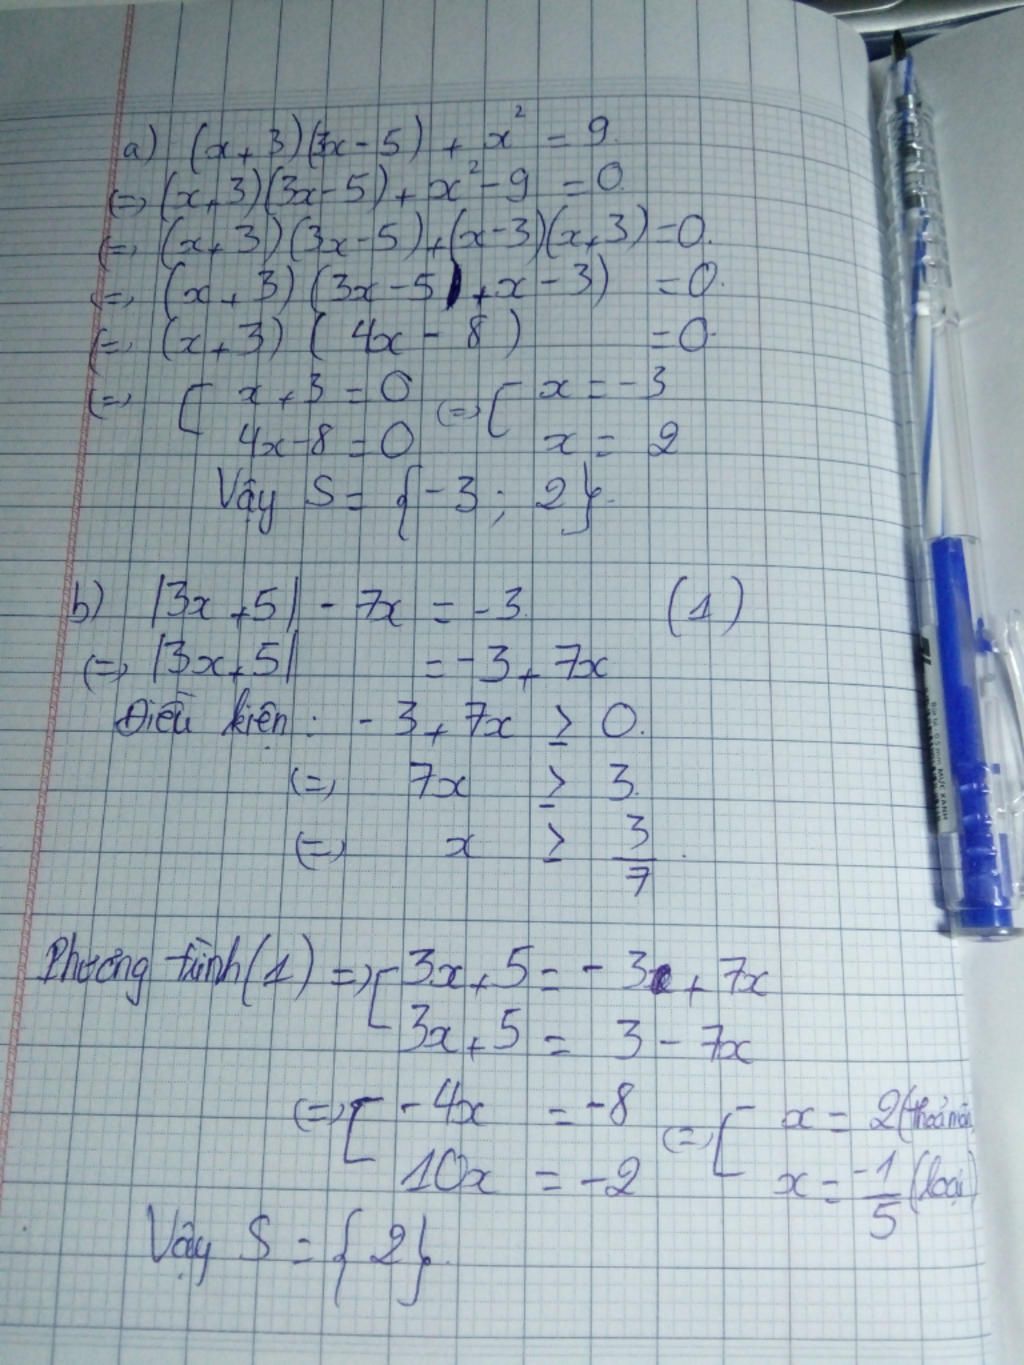 a) (x+3)(3x-5) + x² = 9.
(=) (x+3)(3x-5) + x²-9 = 0.
(=) (x+3)(3x-5)+(x-3)(x+3)=0.
(=) (x+3) (3x-5 +x-3) = 0.
(=) (x+3) ( 4x - 8 ) =0.
(=) [ x+3=0 (=) [ x=-3
4x-8=0 x= 2
Vậy S= {-3; 2}.
b) |3x+5| - 7x = -3. (1)
(=) |3x+5| =-3+7x
Điều kiện: -3+7x ≥ 0.
(=) 7x ≥ 3.
(=) x ≥ 3/7.
Phương trình(1) =) [ 3x+5=-3+7x
3x+5 = 3-7x
(=) [ -4x = -8 (=) [ x = 2 (thoả mãn
10x = -2 x = -1/5 (loại)
Vậy S = {2}.